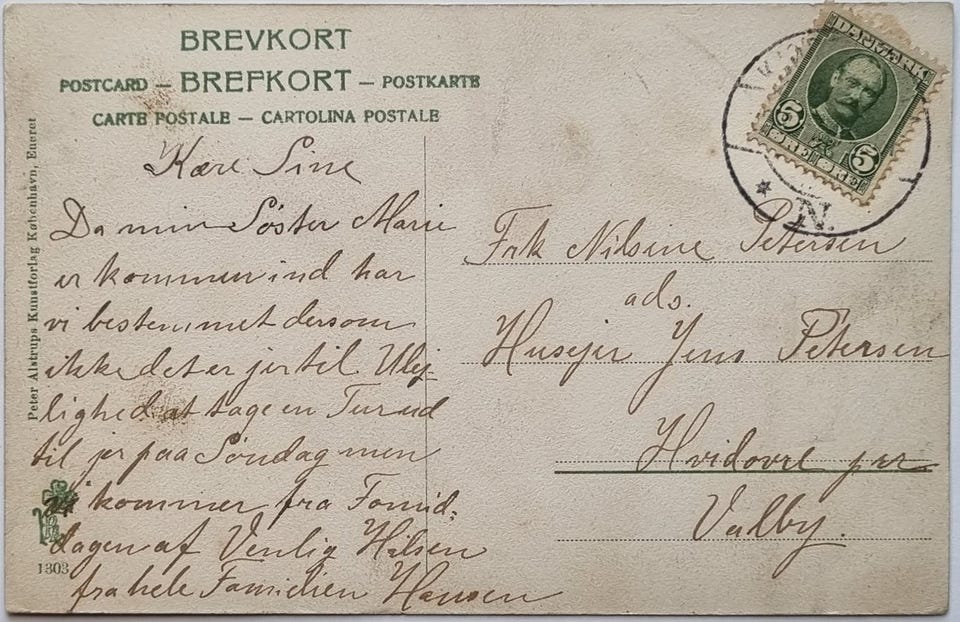 BREVKORT
POSTCARD — BREFKORT — POSTKARTE
CARTE POSTALE — CARTOLINA POSTALE
Kære Sine
Da min Søster Marie
er kommen ind har
vi bestemmet dersom
ikke det er jer til Ulej-
lighed at tage en Tur ud
til jer paa Søndag men
vi kommer fra Formid-
dagen af Venlig Hilsen
fra hele Familien Hansen
Peter Alstrups Kunstforlag København, Eneret
1303
DANMARK
5 5
ØRE ØRE
N.
Frk Nilsine Petersen
ads.
Husejer Jens Petersen
Hvidovre per
Valby.